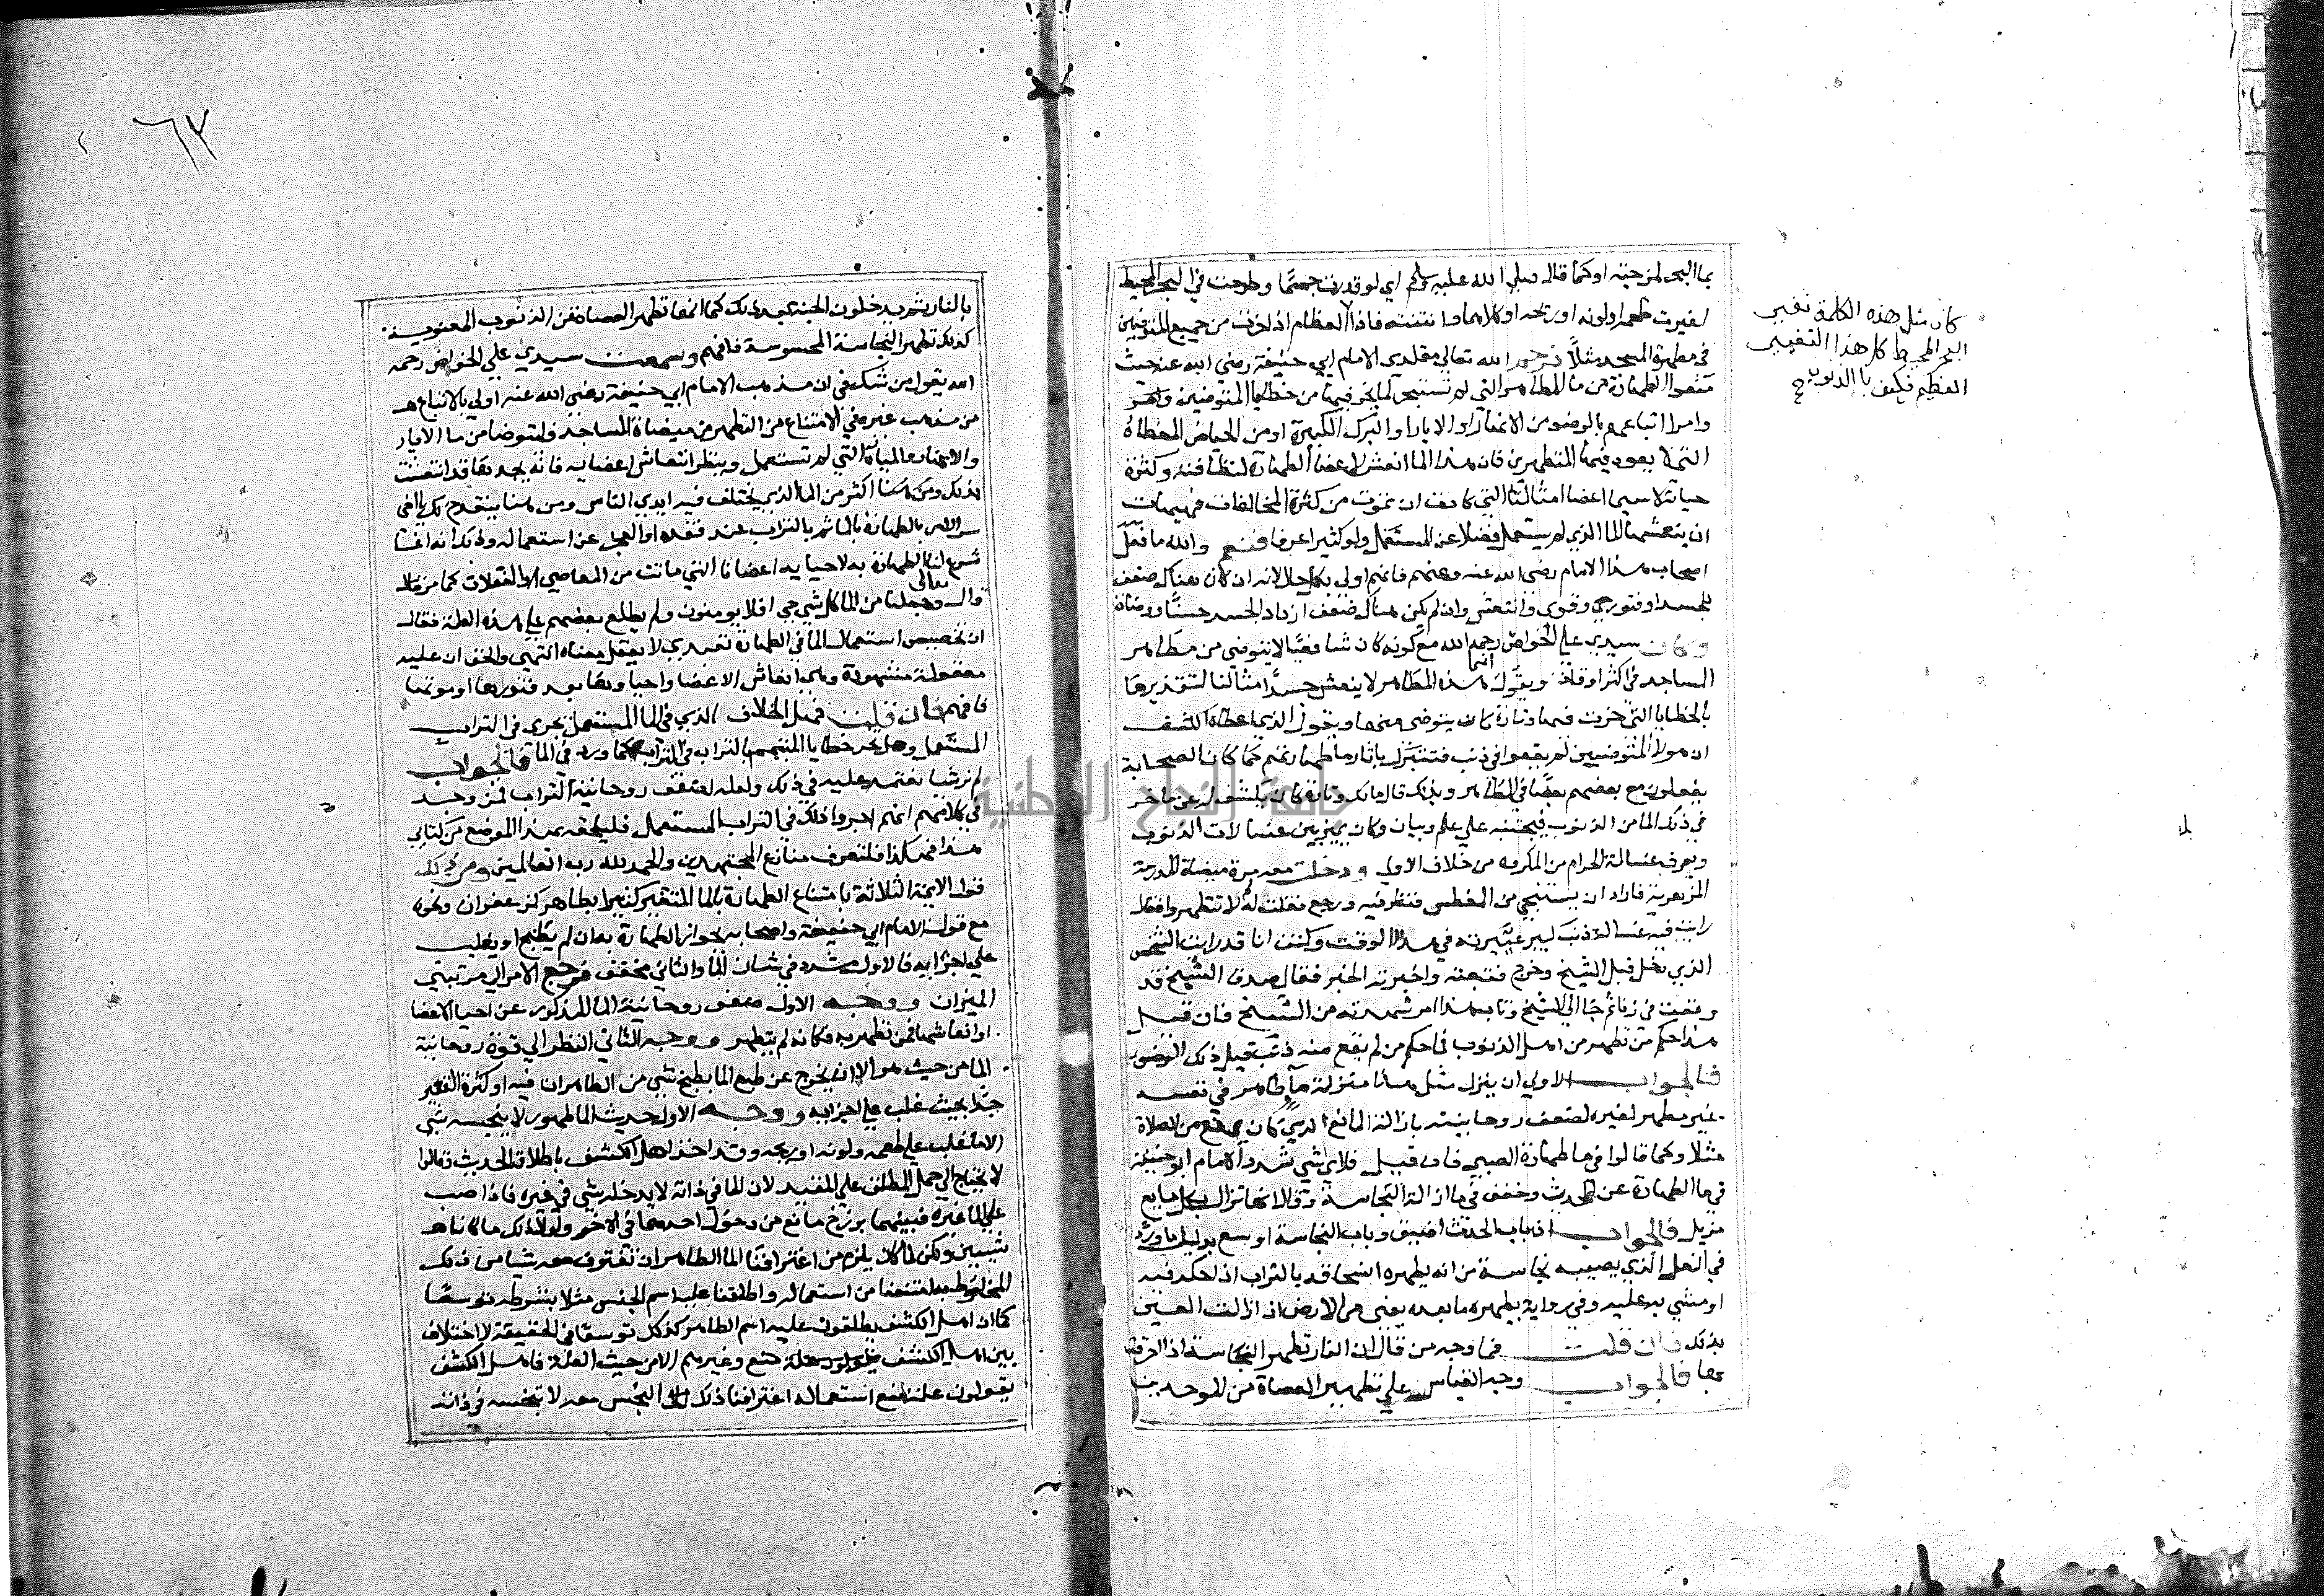 بماء البحر لمزجته او كما قال صلى الله عليه وسلم اي لو قدرت جسما وطرحت في البحر المحيط
لغيرت طعمه او لونه او ريحه او كلاهما وانتنته فاذا العظام اذا خرت من جميع المتوضيين
في مطهرة المسجد مثلا فرحم الله تعالى مقلدي الامام ابي حنيفة رضي الله عنه حيث
منعوا الطهارة من ماء المطاهر التي لم تستبحر لما يخر فيها من خطايا المتوضيين
وامرا اتباعهم بالوضو من الانهار او الابار او البرك الكبيرة او من الحياض المغطاة
التي لا يعود فيها المتطهرين فان هذا الماء انعش لاعضاء الطهارة لنظافته وكثرة
حياته لا سيما اعضا امثالنا التي كادت ان تموت من كثرة المخالفات فهيهات
ان ينعشها الماء الذي لم يستعمل فضلا عن المستعمل ولو كثيرا عرفا والله ما فعل
اصحاب هذا الامام رضي الله عنه وعنهم فانهم اولى بكل حال لانه ان كان هناك ضعف
للجسد او فتور حي وقوي وانتعش وان لم يكن هناك ضعف ازداد الجسد حسنا وضاة
وكان سيدي علي الخواص رحمه الله مع كونه كان شافعيا لا يتوضي من مطاهر
المساجد في اكثر اوقاته ويقول انما هذه المطاهر لا ينعش جسد امثالنا لتقذيرها
بالخطايا التي خرت فيها وتارة كان يتوضي منها ويقول الذي اعطاه الكشف
ان هولا المتوضيين لم يقعوا في ذنب فنتبرك باثار ماء طهارتهم كما كان الصحابة
يفعلون مع بعضهم بعضا في المطاهر وبذلك قال مالك وتارة كان يكشف له عن ما خر
في ذلك الماء من الذنوب فيجتنبه على علم وبيان وكان يميز بين غسالات الذنوب
ويعرف غسالة الحرام من المكروه من خلاف الاولى ودخلت معه مرة ميضاة المدرسة
المزهرية فاراد ان يستنجي من المغطس فنظر فيه ورجع فقلت له لا تتطهر فقال
رايت فيه غسالة ذنب كبير غيرته في هذا الوقت وكنت انا قد رايت الشخص
الذي دخل قبل الشيخ وخرج فتبعته واخبرته الخبر فقال صدق الشيخ قد
وقعت في زنا ثم جا الى الشيخ وتاب هذا امر شهدته من الشيخ فان قيل
هذا حكم من تطهر من اهل الذنوب فما حكم من لم يقع منه ذنب قبل ذلك الوضو
فالجواب الاولى ان ينزل مثل هذا منزلة ماء طاهر في نفسه
غير مطهر لغيره لضعف روحانيته بازالة المانع الذي كان يمنع من الصلاة
مثلا وكما قالوا في ماء طهارة الصبي فان قيل فلاي شي شدد الامام ابو حنيفة
في ماء الطهارة عن الحدث وخفف في ما ازالة النجاسة وقال انها تزال بكل مايع
مزيل فالجواب ان باب الحدث اضيق وباب النجاسة اوسع بدليل ما ورد
في النعل الذي يصيبه نجاسة من انه يطهره انسحاقه بالتراب اذا حك فيه
او مشي به عليه وفي رواية يطهره ما بعده يعني من الارض اذا زالت العين
بذلك فان قلت فما وجه من قال ان النار تطهر النجاسة اذا احرقت
بها فالجواب وجه القياس على تطهير العصاة من الموحدين
كان مثل هذه الكلمة تغير
البحر المحيط كل هذا التغيير
العظيم فكيف بالذنوب
٦٣
بالنار ثم يدخلون الجنة بعد ذلك فكما انها تطهر العصاة من الذنوب المعنوية
كذلك تطهر النجاسة المحسوسة فافهم وسمعت سيدي علي الخواص رحمه
الله يقول من شك في ان مذهب الامام ابي حنيفة رضي الله عنه اولى بالاتباع
من مذهب غيره في الامتناع من التطهر من ميضاة المساجد فليتوضا من ماء الابار
والانهار والمياه التي لم تستعمل وينظر انتعاش اعضايه فانه يجدها قد انتعشت
بذلك اكثر من الماء الذي يختلف فيه ايدي الناس ومن هنا ينقدح لك
سر الامر بالطهارة بالماء ثم بالتراب عند فقده او العجز عن استعماله وذلك انه انما
شرع لنا الطهارة به لاحيا به اعضانا التي ماتت من المعاصي او الغفلات كما مر
قال تعالى وجعلنا من الماء كل شي حي افلا يومنون ولم يطلع بعضهم على هذه العلة فقال
ان تخصيص استعمال الماء في الطهارة تعبدي لا يعقل معناه انتهى والحق ان علته
معقولة مشهودة وهي انعاش الاعضا واحياوها بعد فتورها او موتها
فافهم فان قلت فهل الخلاف الذي في الماء المستعمل يجري في التراب
المستعمل وهل تخر خطايا المتيمم بالتراب في التراب كما ورد في الماء فالجواب
لم نر شيا نعتمد عليه في ذلك ولعله لضعف روحانية التراب فمن وجد
في كلامهم انهم اجروا ذلك في التراب المستعمل فليلحقه بهذا الموضع من كتابي
هذا فهكذا فلتعرف منازع المجتهدين والحمد لله رب العالمين ومن ذلك
قول الايمة الثلاثة بامتناع الطهارة بالماء المتغير كثيرا بطاهر كزعفران ونحوه
مع قول الامام ابي حنيفة واصحابه بجواز الطهارة به ان لم يطبخ او يغلب
على اجزايه فالاول مشدد في شان الماء والثاني مخفف فرجع الامر الى مرتبتي
الميزان ووجه الاول ضعف روحانية الماء المذكور عن احيا الاعضا
او انعاشها فمن تطهر به فكانه لم يتطهر ووجه الثاني النظر الى قوة روحانية
الماء من حيث هو الا ان يخرج عن طبع الماء بطبخ شي من الطاهرات فيه او كثرة التغير
جدا بحيث غلب على اجزايه ووجه الاول حديث الماء طهور لا ينجسه شي
الا ما غلب على طعمه ولونه او ريحه وقد اخذ اهل الكشف باطلاق الحديث وقالوا
لا يحتاج الى حمل المطلق على المقيد لان الماء في ذاته لا يدخله شي في غيره فاذا صب
على الماء غيره فبينهما برزخ مانع من دخول احدهما في الاخر ولولا ذلك ما كانا
شيين ولكن لما كان يلزم من اغترافنا الماء الطاهر ان نغترف معه شيا من ذلك
المخلوط به امتنعنا من استعماله واطلقنا عليه اسم النجس مثلا بشرطه توسعا
كما ان اهل الكشف يطلقون عليه اسم الطاهر كذلك توسعا في الحقيقة لا اختلاف
بين اهل الكشف وغيرهم الا من حيث العلة فاهل الكشف
يقولون علة منع استعماله اغترافنا ذلك النجس معه لا تنجسه في ذاته
جامعة النجاح الوطنية